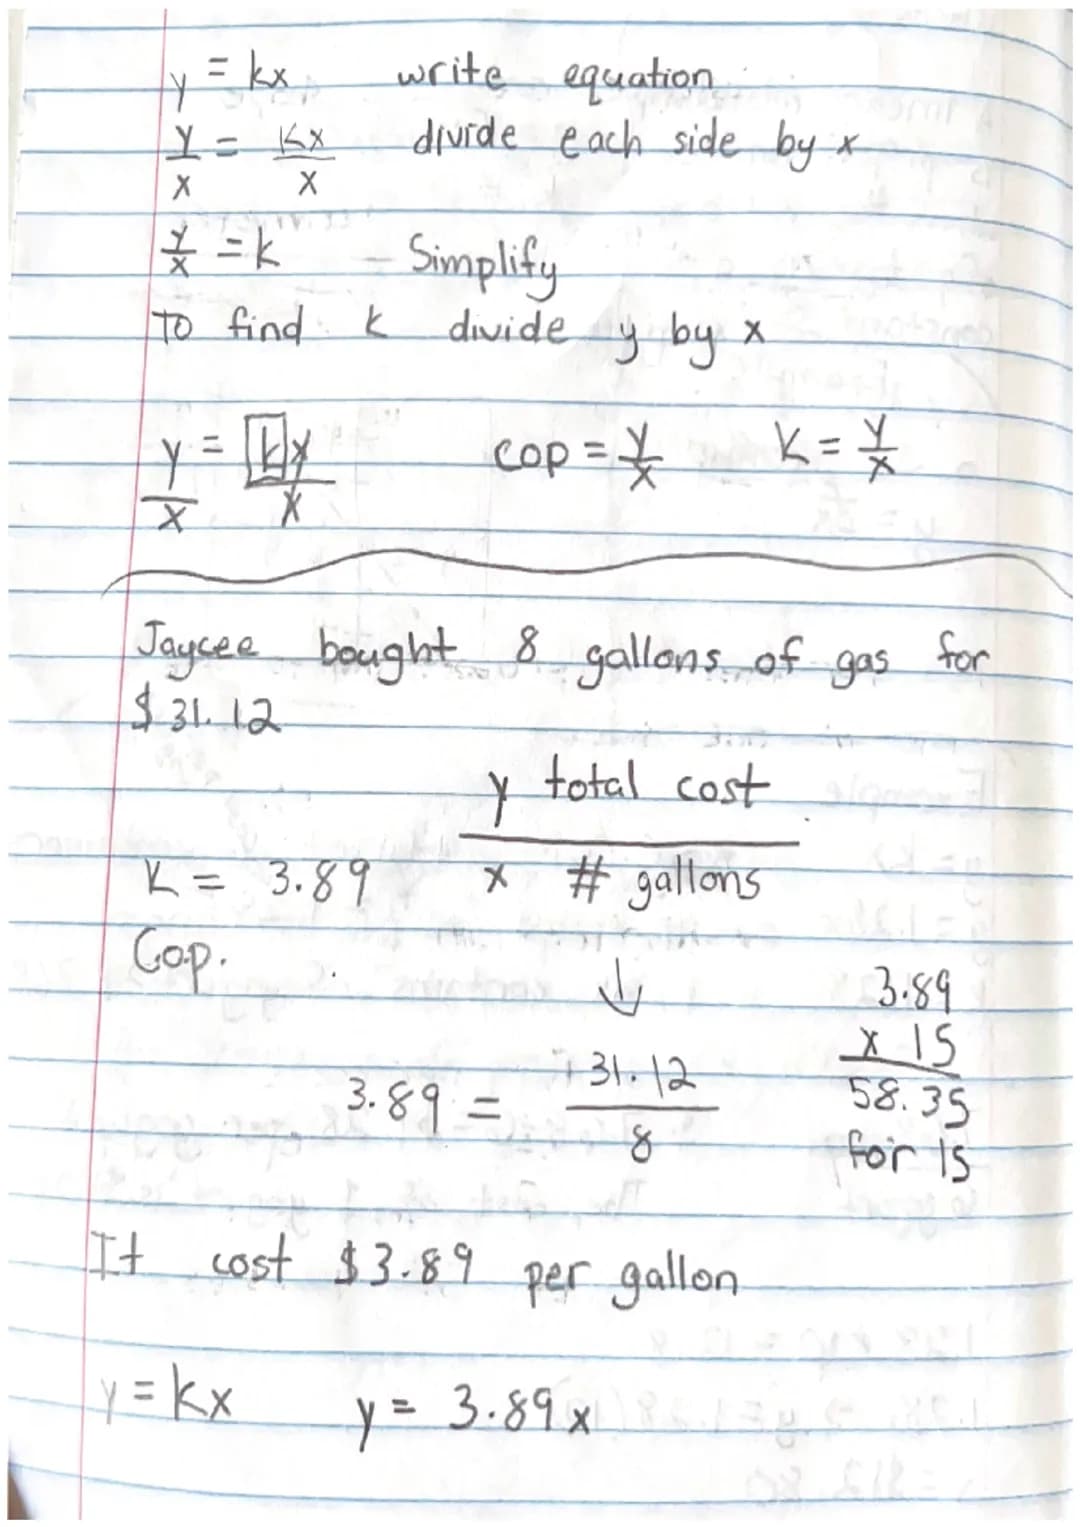 y = kx write equation
y/x = kx/x divide each side by x
y/x = k - Simplify
To find k divide y by x
y/x = kx/x cop = y/x K = y/x
Jaycee bought 8 gallons of gas for
$31.12
y total cost
K = 3.89 x # gallons
Cop. ↓ 3.89
x 15
3.89 = 31.12/8 58.35
for 15
It cost $3.89 per gallon
y = kx y = 3.89x